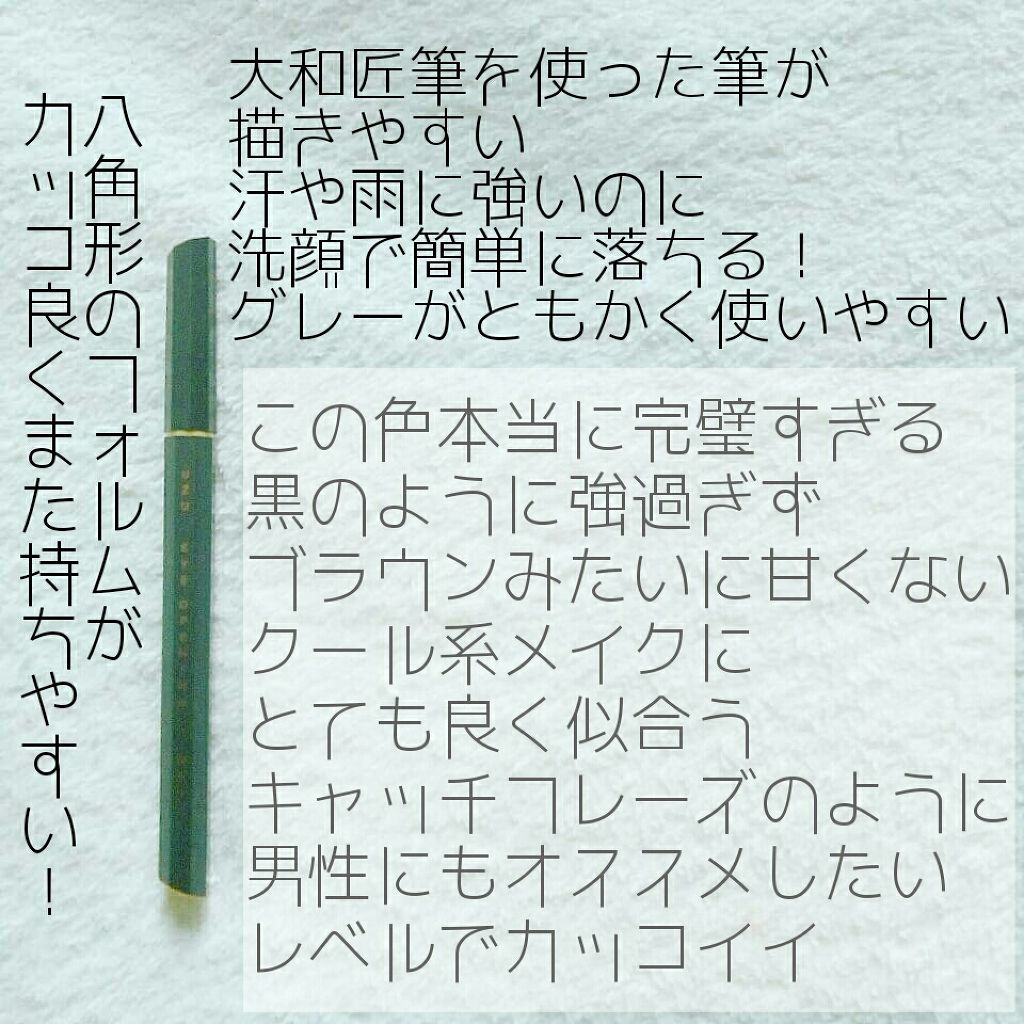 大和匠筆を使った筆が
描きやすい
汗や雨に強いのに
洗顔で簡単に落ちる！
グレーがともかく使いやすい
八角形のフォルムが
カッコ良くまた持ちやすい！
この色本当に完璧すぎる
黒のように強過ぎず
ブラウンみたいに甘くない
クール系メイクに
とても良く似合う
キャッチフレーズのように
男性にもオススメしたい
レベルでカッコイイ